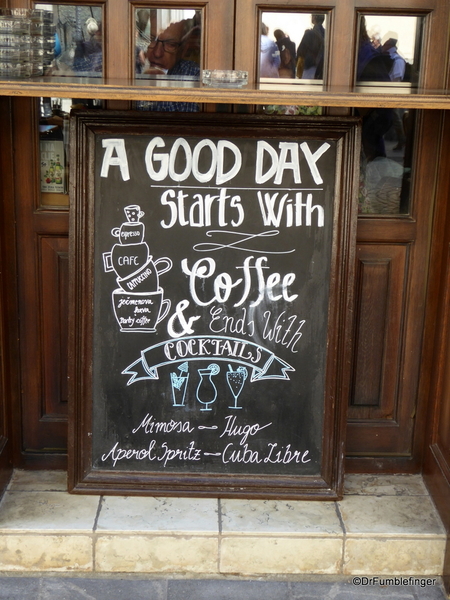 A GOOD DAY
Starts With
espresso
CAFE
CAPPUCCINO
ječmenova
kava
barley coffee
Coffee
& Ends With
COCKTAILS
Mimosa — Hugo
Aperol Spritz — Cuba Libre
©DrFumblefinger